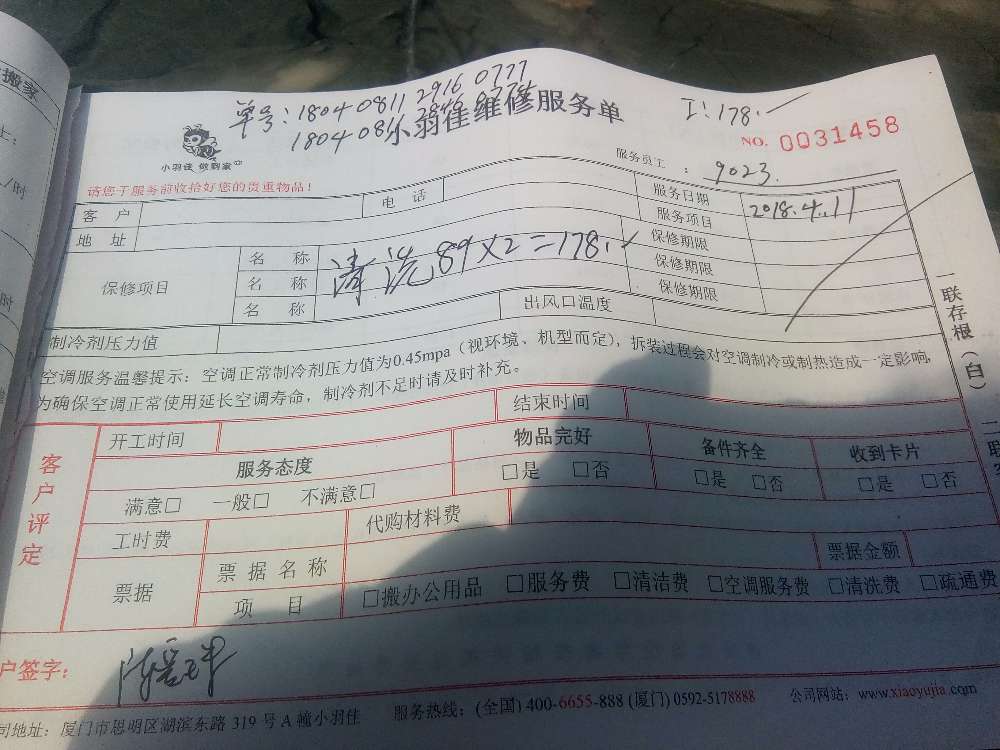 搬家
单号:1804 0811 2916 0777
1804 0811
小羽佳维修服务单
I:178.
NO. 0031458
小羽佳 做到家
服务员工: 9023
请您于服务前收拾好您的贵重物品!
客户 电话 服务日期 2018.4.11
地址 服务项目
保修项目 名称 清洗89X2=178. 保修期限
名称 保修期限
名称 保修期限
制冷剂压力值 出风口温度
空调服务温馨提示:空调正常制冷剂压力值为0.45mpa(视环境、机型而定),拆装过程会对空调制冷或制热造成一定影响,
为确保空调正常使用延长空调寿命,制冷剂不足时请及时补充。
一联存根(白)
客户评定
开工时间 结束时间
服务态度 物品完好 备件齐全 收到卡片
满意□ 一般□ 不满意□ □是 □否 □是 □否 □是 □否
工时费 代购材料费
票据 票据名称 票据金额
项目 □搬办公用品 □服务费 □清洁费 □空调服务费 □清洗费 □疏通费
户签字:
司地址:厦门市思明区湖滨东路 319 号 A 幢小羽佳 服务热线:(全国) 400-6655-888 (厦门) 0592-5178888 公司网站:www.xiaoyujia.com